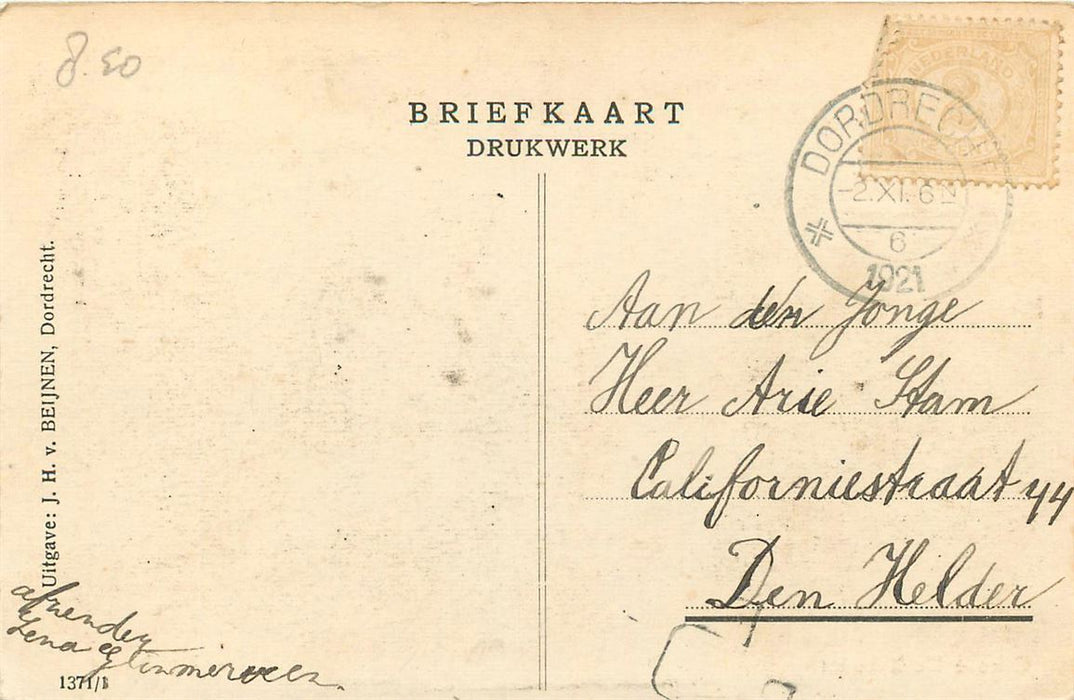 8.50
BRIEFKAART
DRUKWERK
NEDERLAND
DORDRECHT
-2.XI.6N
6
1921
Aan den Jonge
Heer Arie Stam
Californiestraat 44
Den Helder
Uitgave: J. H. v. BEIJNEN, Dordrecht.
afzender
Lena
1371/1